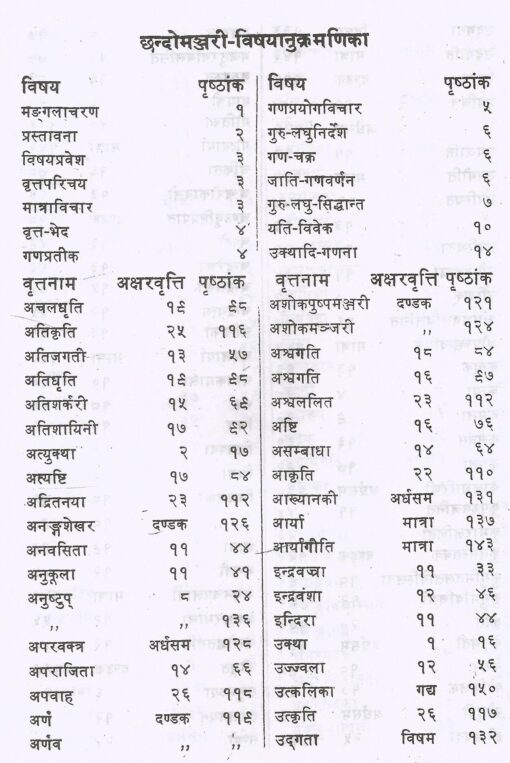 छन्दोमञ्जरी-विषयानुक्रमणिका
विषय पृष्ठांक
मङ्गलाचरण १
प्रस्तावना २
विषयप्रवेश ३
वृत्तपरिचय ३
मात्राविचार ३
वृत्त-भेद ४
गणप्रतीक ४
वृत्तनाम अक्षरवृत्ति पृष्ठांक
अचलधृति १९ ९८
अतिकृति २५ ११६
अतिजगती १३ ५७
अतिधृति १९ ९८
अतिशर्करी १५ ६९
अतिशायिनी १७ ९२
अत्युक्था २ १७
अत्यष्टि १७ ८४
अद्रितनया २३ ११२
अनङ्गशेखर दण्डक १२६
अनवसिता ११ ४४
अनुकूला ११ ४१
अनुष्टुप् ८ २४
,, १३६
अपरवक्त्र अर्धसम १२८
अपराजिता १४ ६६
अपवाह २६ ११८
अर्ण दण्डक ११९
अर्णव ,, ,,
विषय पृष्ठांक
गणप्रयोगविचार ५
गुरु-लघुनिर्देश ६
गण-चक्र ६
जाति-गणवर्णन ६
गुरु-लघु-सिद्धान्त ७
यति-विवेक १०
उक्थादि-गणना १४
वृत्तनाम अक्षरवृत्ति पृष्ठांक
अशोकपुष्पमञ्जरी दण्डक १२१
अशोकमञ्जरी ,, १२४
अश्वगति १८ ८४
अश्वगति १६ ९७
अश्वललित २३ ११२
अष्टि १६ ७६
असम्बाधा १४ ६४
आकृति २२ ११०
आख्यानकी अर्धसम १३१
आर्या मात्रा १३७
आर्यागीति मात्रा १४३
इन्द्रवज्रा ११ ३३
इन्द्रवंशा १२ ४६
इन्दिरा ११ ४४
उक्था १ १६
उज्ज्वला १२ ५६
उत्कलिका गद्य १५०
उत्कृति २६ ११७
उद्गता विषम १३२